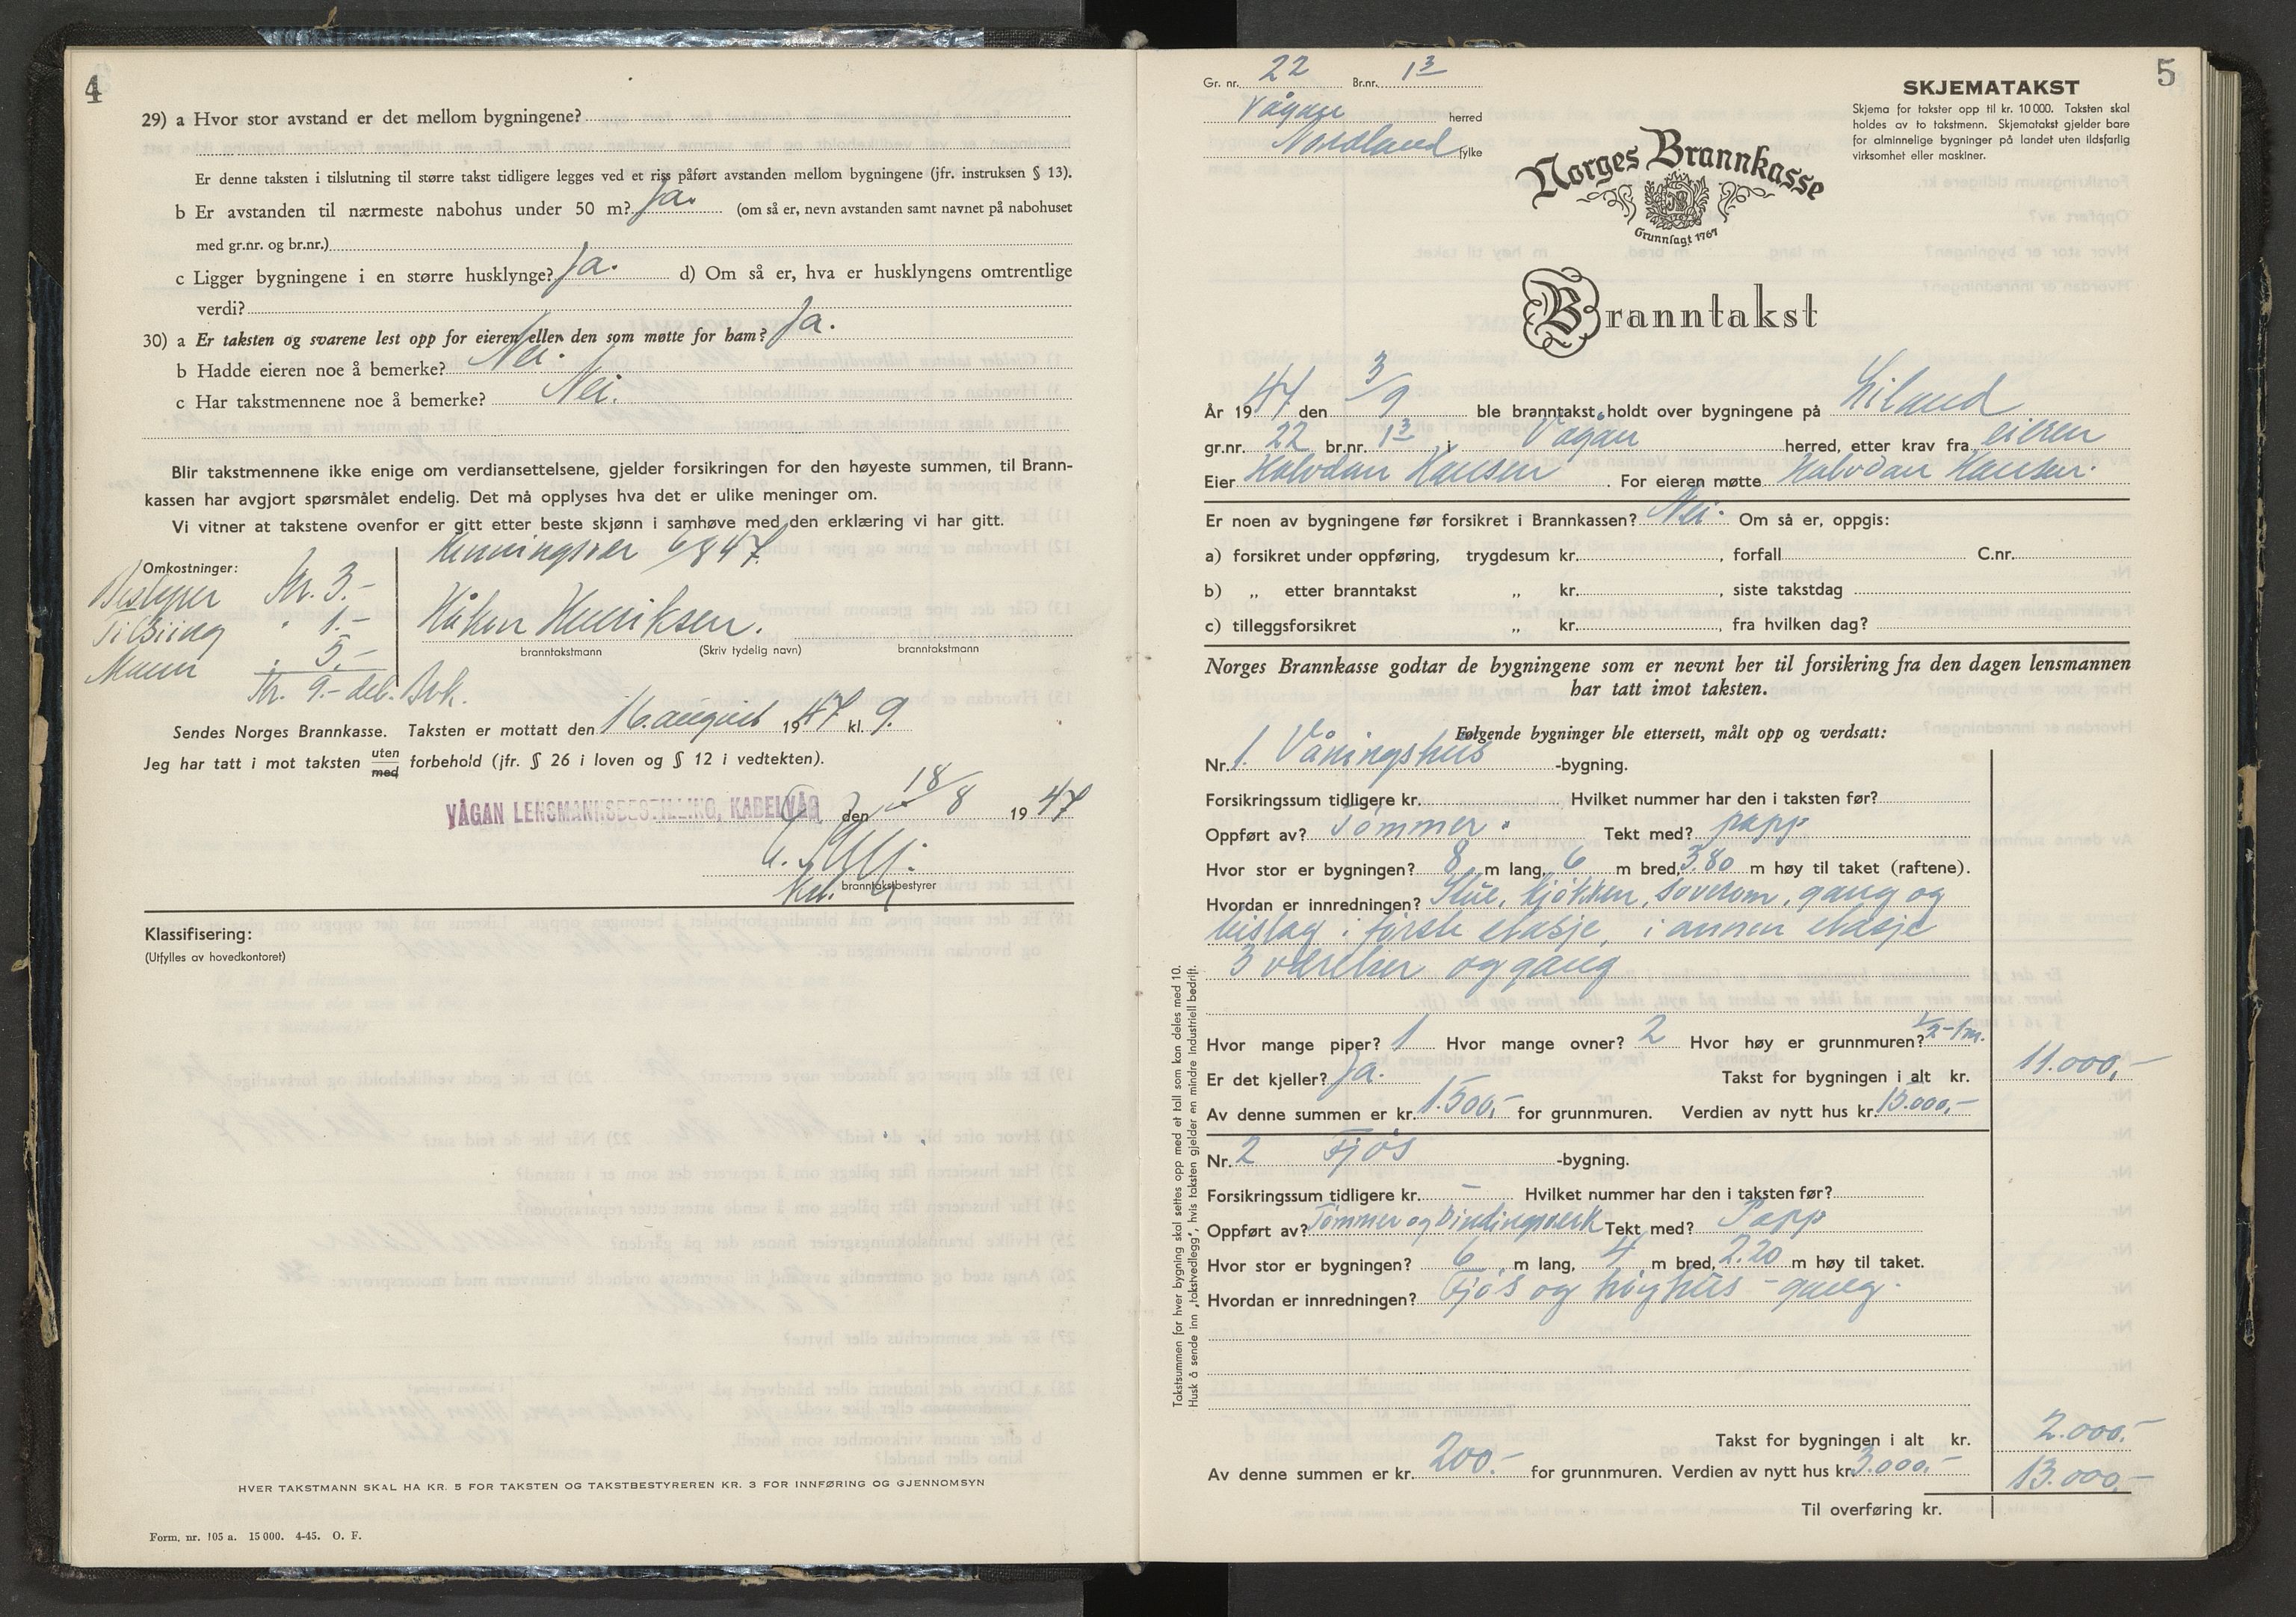 4
29) a Hvor stor avstand er det mellom bygningene?
Er denne taksten i tilslutning til større takst tidligere legges ved et riss påført avstanden mellom bygningene (jfr. instruksen § 13).
b Er avstanden til nærmeste nabohus under 50 m? Ja. (om så er, nevn avstanden samt navnet på nabohuset
med gr.nr. og br.nr.)
c Ligger bygningene i en større husklynge? Ja. d) Om så er, hva er husklyngens omtrentlige
verdi?
30) a Er taksten og svarene lest opp for eieren eller den som møtte for ham? Ja.
b Hadde eieren noe å bemerke? Nei.
c Har takstmennene noe å bemerke? Nei.
Blir takstmennene ikke enige om verdiansettelsene, gjelder forsikringen for den høyeste summen, til Brann-
kassen har avgjort spørsmålet endelig. Det må opplyses hva det er ulike meninger om.
Vi vitner at takstene ovenfor er gitt etter beste skjønn i samhøve med den erklæring vi har gitt.
Henningsvær 6/8 47.
Omkostninger:
Bestyrer Kr. 3.-
Tilsiing " 1.-
Mann " 5.-
Kr. 9.- deb. Brk.
Håkon Henriksen.
branntakstmann (Skriv tydelig navn) branntakstmann
Sendes Norges Brannkasse. Taksten er mottatt den 16. august 1947 kl. 9.
Jeg har tatt i mot taksten uten med forbehold (jfr. § 26 i loven og § 12 i vedtekten).
VÅGAN LENSMANNSBESTILLING, KABELVÅG den 18/8 1947
branntakstbestyrer
Klassifisering:
(Utfylles av hovedkontoret)
HVER TAKSTMANN SKAL HA KR. 5 FOR TAKSTEN OG TAKSTBESTYREREN KR. 3 FOR INNFØRING OG GJENNOMSYN
Form. nr. 105 a. 15 000. 4-45. O. F.
5
Gr. nr. 22 Br.nr. 13
Vågan herred
Nordland fylke
SKJEMATAKST
Skjema for takster opp til kr. 10 000. Taksten skal
holdes av to takstmenn. Skjematakst gjelder bare
for alminnelige bygninger på landet uten ildsfarlig
virksomhet eller maskiner.
Norges Brannkasse
Grunnlagt 1767
Branntakst
År 1947 den 3/9 ble branntakst holdt over bygningene på Liland
gr.nr. 22 br.nr. 13 i Vågan herred, etter krav fra eieren
Eier Halvdan Hansen. For eieren møtte Halvdan Hansen.
Er noen av bygningene før forsikret i Brannkassen? Nei. Om så er, oppgis:
a) forsikret under oppføring, trygdesum kr., forfall C.nr.
b) „ etter branntakst „ kr., siste takstdag
c) tilleggsforsikret „ kr., fra hvilken dag?
Norges Brannkasse godtar de bygningene som er nevnt her til forsikring fra den dagen lensmannen
har tatt imot taksten.
Følgende bygninger ble ettersett, målt opp og verdsatt:
Nr. 1. Våningshus -bygning.
Forsikringssum tidligere kr. Hvilket nummer har den i taksten før?
Oppført av? Tømmer. Tekt med? papp
Hvor stor er bygningen? 8 m lang, 6 m bred, 3.80 m høy til taket (raftene).
Hvordan er innredningen? Stue, kjøkken, soverom, gang og
bislag i første etasje, i annen etasje
3 værelser og gang
Hvor mange piper? 1 Hvor mange ovner? 2 Hvor høy er grunnmuren? 1/2-1 m.
Er det kjeller? Ja. Takst for bygningen i alt kr. 11.000,-
Av denne summen er kr. 1.500,- for grunnmuren. Verdien av nytt hus kr. 15.000,-
Nr. 2 Fjøs -bygning.
Forsikringssum tidligere kr. - Hvilket nummer har den i taksten før?
Oppført av? Tømmer og bindingsverk Tekt med? Papp
Hvor stor er bygningen? 6 m lang, 4 m bred, 2.20 m høy til taket.
Hvordan er innredningen? Fjøs og høyhus - gang.
Takst for bygningen i alt kr. 2.000.-
Av denne summen er kr. 200.- for grunnmuren. Verdien av nytt hus kr. 3.000.-
13.000,-
Til overføring kr.
Takstsummen for hver bygning skal settes opp med et tall som kan deles med 10.
Husk å sende inn „takstvedlegg", hvis taksten gjelder en mindre industriell bedrift.